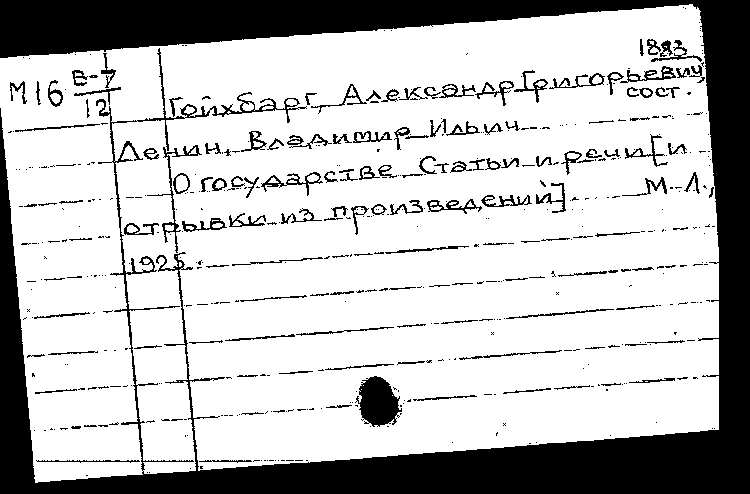 М16 В-7/12
1883
Гойхбарг, Александр Григорьевич, сост.
Ленин, Владимир Ильич
О государстве. Статьи и речи [и
отрывки из произведений]. М.-Л.,
1925.